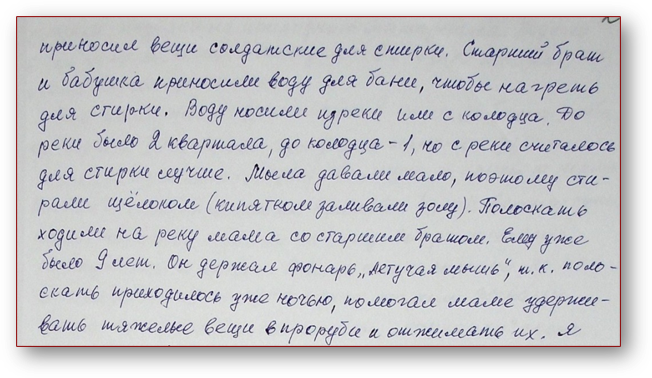 приносил вещи солдатские для стирки. Старший брат
и бабушка приносили воду для бани, чтобы нагреть
для стирки. Воду носили из реки или с колодца. До
реки было 2 квартала, до колодца - 1, но с реки считалось
для стирки лучше. Мыла давали мало, поэтому сти-
рали щёлоком (кипятком заливали золу). Полоскать
ходили на реку мама со старшим братом. Ему уже
было 9 лет. Он держал фонарь „Летучая мышь", т.к. поло-
скать приходилось уже ночью, помогал маме удержи-
вать тяжелые вещи в проруби и отжимать их. Я